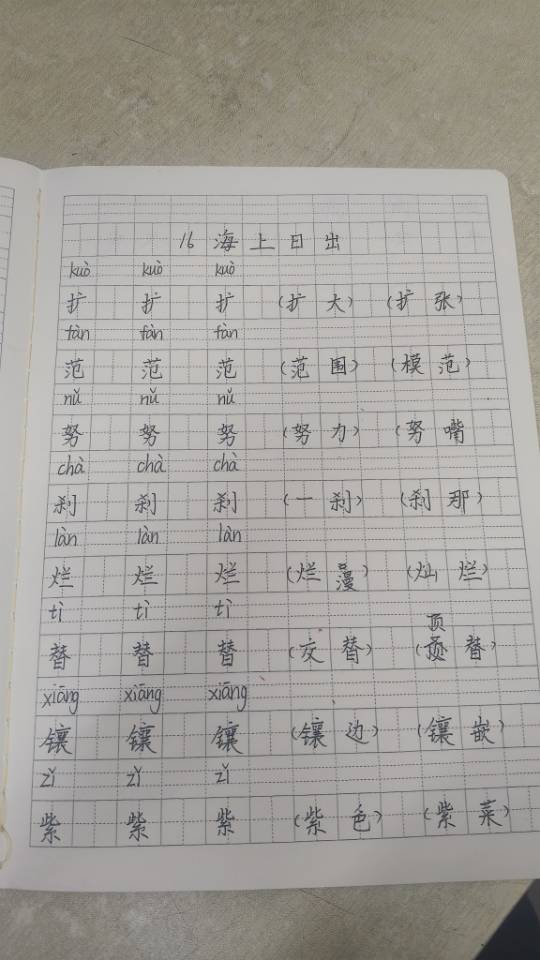 16 海上日出
kuò kuò kuò
扩 扩 扩 (扩大) (扩张)
fàn fàn fàn
范 范 范 (范围) (模范)
nǔ nǔ nǔ
努 努 努 (努力) (努嘴
chà chà chà
刹 刹 刹 (一刹) (刹那)
làn làn làn
烂 烂 烂 (烂漫) (灿烂)
tì tì tì
顶
替 替 替 (交替) (替)
xiāng xiāng xiāng
镶 镶 镶 (镶边) (镶嵌)
zǐ zǐ zǐ
紫 紫 紫 (紫色) (紫菜)